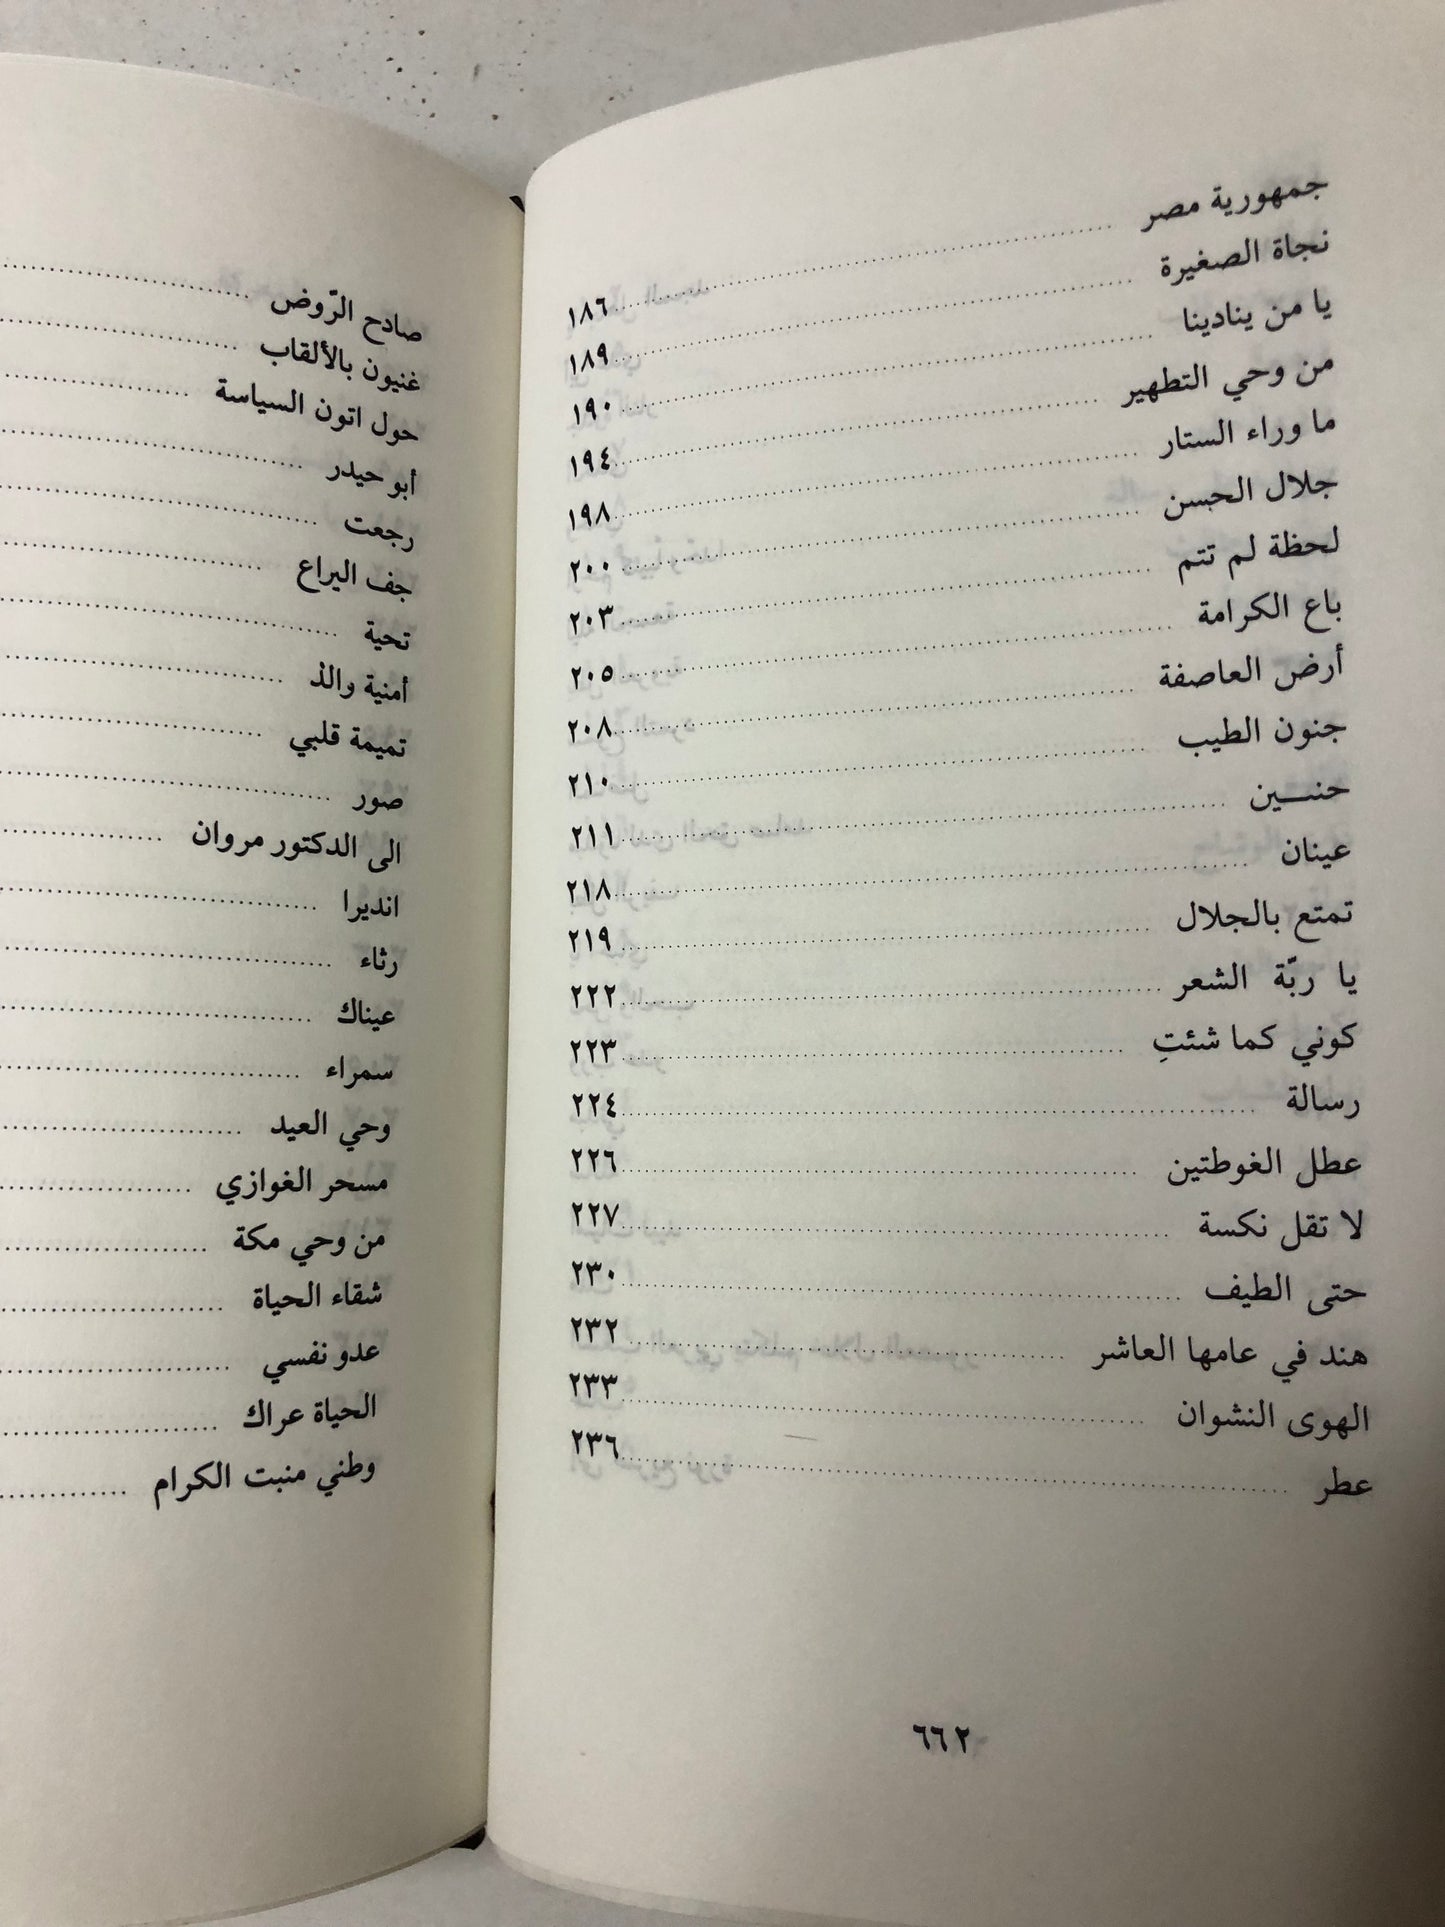 جمهورية مصر ........ ١٨٦
نجاة الصغيرة ........ ١٨٩
يا من ينادينا ........ ١٩٠
من وحي التطهير ........ ١٩٤
ما وراء الستار ........ ١٩٨
جلال الحسن ........ ٢٠٠
لحظة لم تتم ........ ٢٠٣
باع الكرامة ........ ٢٠٥
أرض العاصفة ........ ٢٠٨
جنون الطيب ........ ٢١٠
حنـــين ........ ٢١١
عينان ........ ٢١٨
تمتع بالجلال ........ ٢١٩
يا ربّة الشعر ........ ٢٢٢
كوني كما شئتِ ........ ٢٢٣
رسالة ........ ٢٢٤
عطل الغوطتين ........ ٢٢٦
لا تقل نكسة ........ ٢٢٧
حتى الطيف ........ ٢٣٠
هند في عامها العاشر ........ ٢٣٢
الهوى النشوان ........ ٢٣٣
عطر ........ ٢٣٦
٦٦٢
صادح الرّوض ........
غنيون بالألقاب ........
حول اتون السياسة ........
أبو حيدر ........
رجعت ........
جف اليراع ........
تحية ........
أمنية والذ ........
تميمة قلبي ........
صور ........
الى الدكتور مروان ........
انديرا ........
رثاء ........
عيناك ........
سمراء ........
وحي العيد ........
مسحر الغوازي ........
من وحي مكة ........
شقاء الحياة ........
عدو نفسي ........
الحياة عراك ........
وطني منبت الكرام ........